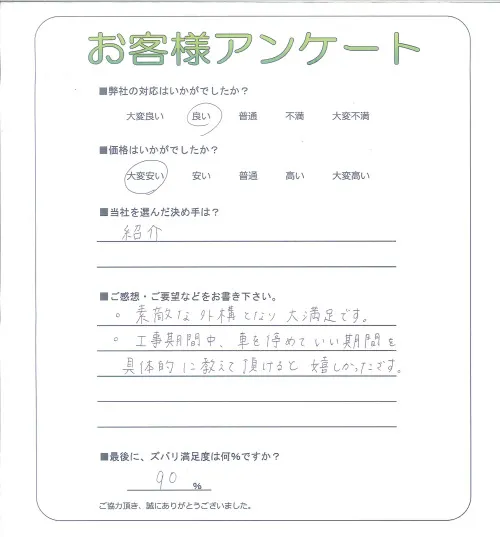 お客様アンケート
■弊社の対応はいかがでしたか？
大変良い 良い 普通 不満 大変不満
■価格はいかがでしたか？
大変安い 安い 普通 高い 大変高い
■当社を選んだ決め手は？
紹介
■ご感想・ご要望などをお書き下さい。
。素敵な外構となり大満足です。
。工事期間中、車を停めていい期間を
具体的に教えて頂けると嬉しかったです。
■最後に、ズバリ満足度は何%ですか？
90 %
ご協力頂き、誠にありがとうございました。